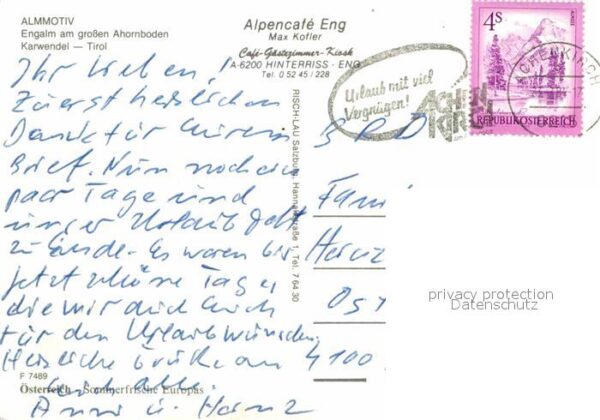 ALMMOTIV
Engalm am großen Ahornboden
Karwendel — Tirol
Alpencafé Eng
Max Kofler
Café-Gästezimmer-Kiosk
A-6200 HINTERRISS - ENG
Tel. 0 52 45 / 228
Urlaub mit viel
Vergnügen!
ACHEN
KIRCH
4S
REPUBLIK ÖSTERREICH
ACHENKIRCH
Ihr Lieben!
Zuerst herzlichen
Dank für Euren
Brief. Nun noch ein
paar Tage und
unser Urlaub geht
zu Ende. Es waren bis
jetzt schöne Tage,
die mir
für den Urlaubwünschen
Herzliche Grüße an
Euch alle
Anni u. Heinz
BRD
Fami
Heinz
Ost
4100
RISCH-LAU Salzburg, Hannakstraße 1, Tel. 7 64 30
privacy protection
Datenschutz
F 7489
Österreich - Sommerfrische Europas